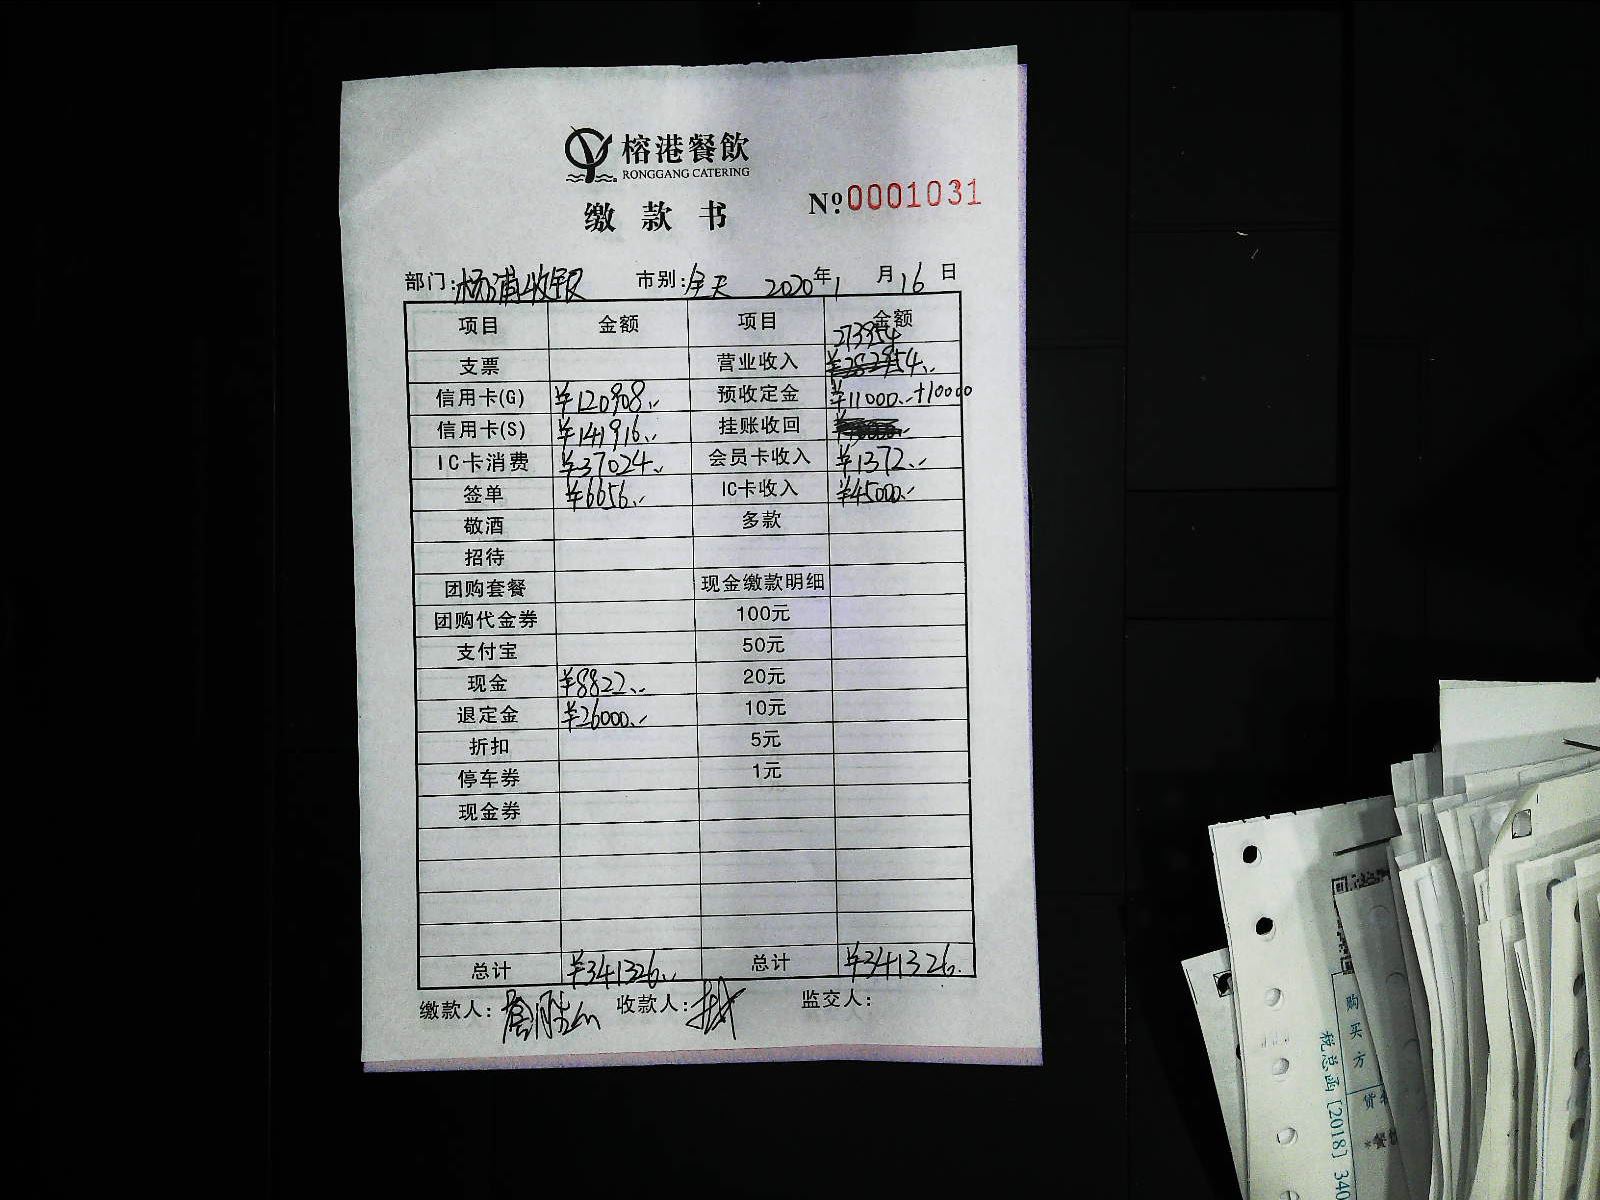 榕港餐飲
RONGGANG CATERING
缴款书
Nº:0001031
部门:杨浦收银 市别:全天 2020年1月16日
项目 金额 项目 金额
273954
支票 营业收入
信用卡(G) ¥120908.- 预收定金 ¥11000.-+10000
信用卡(S) ¥141916.- 挂账收回
IC卡消费 ¥37024.- 会员卡收入 ¥1372.-
签单 ¥6656.- IC卡收入 ¥45000.-
敬酒 多款
招待
团购套餐 现金缴款明细
团购代金券 100元
支付宝 50元
现金 ¥8822.- 20元
退定金 ¥26000.- 10元
折扣 5元
停车券 1元
现金券
总计 ¥341326.- 总计 ¥341326.
缴款人: 收款人: 监交人:
购买方
税总函[2018]340